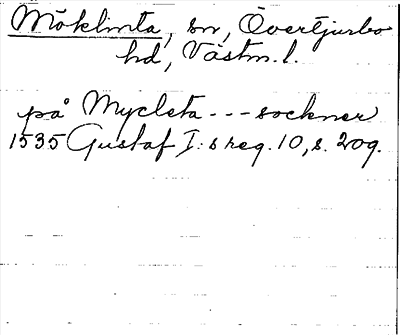 Möklinta, sn, Övertjurbo
hd, Västm. l.
på Mycleta --- sockner
1535 Gustaf I:s reg. 10, s. 209.